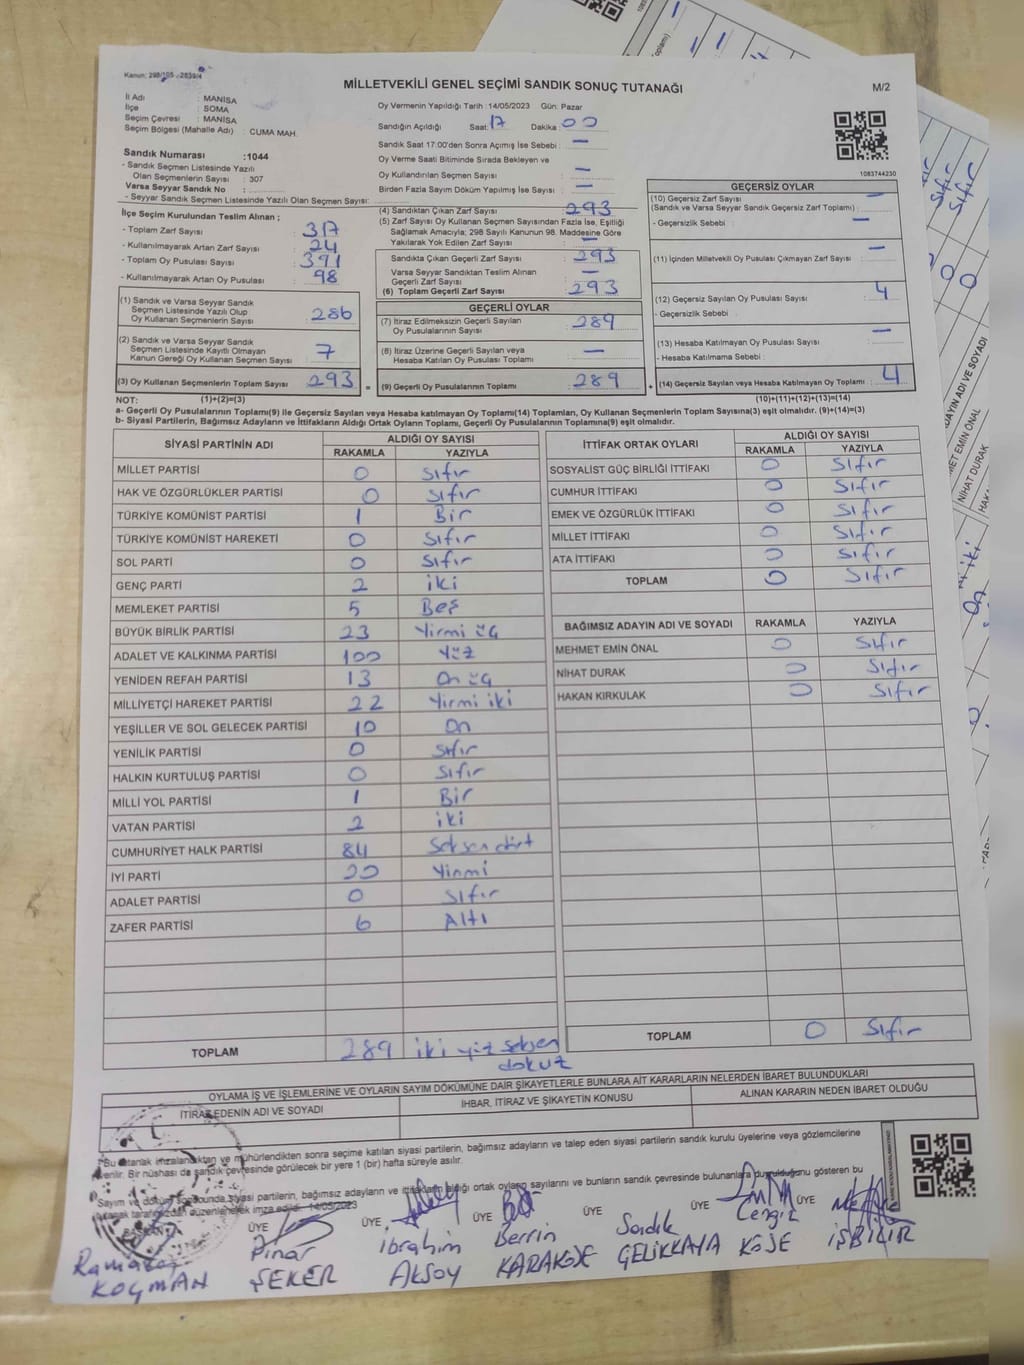 Kanun: 298/105 -2839/4
MİLLETVEKİLİ GENEL SEÇİMİ SANDIK SONUÇ TUTANAĞI
M/2
İl Adı : MANİSA
İlçe : SOMA
Seçim Çevresi : MANİSA
Seçim Bölgesi (Mahalle Adı) : CUMA MAH.
Oy Vermenin Yapıldığı Tarih : 14/05/2023 Gün: Pazar
Sandığın Açıldığı Saat: 17 Dakika: 00
Sandık Saat 17.00'den Sonra Açımış İse Sebebi : —
Oy Verme Saati Bitiminde Sırada Bekleyen ve
Oy Kullandırılan Seçmen Sayısı : —
Birden Fazla Sayım Döküm Yapılmış İse Sayısı : —
1083744230
Sandık Numarası :1044
- Sandık Seçmen Listesinde Yazılı
Olan Seçmenlerin Sayısı : 307
Varsa Seyyar Sandık No :
- Seyyar Sandık Seçmen Listesinde Yazılı Olan Seçmen Sayısı:
İlçe Seçim Kurulundan Teslim Alınan ;
- Toplam Zarf Sayısı : 317
- Kullanılmayarak Artan Zarf Sayısı : 24
- Toplam Oy Pusulası Sayısı : 391
- Kullanılmayarak Artan Oy Pusulası : 98
(1) Sandık ve Varsa Seyyar Sandık
Seçmen Listesinde Yazılı Olup
Oy Kullanan Seçmenlerin Sayısı : 286
(2) Sandık ve Varsa Seyyar Sandık
Seçmen Listesinde Kayıtlı Olmayan
Kanun Gereği Oy Kullanan Seçmen Sayısı : 7
(3) Oy Kullanan Seçmenlerin Toplam Sayısı : 293 =
(4) Sandıktan Çıkan Zarf Sayısı : 293
(5) Zarf Sayısı Oy Kullanan Seçmen Sayısından Fazla İse, Eşitliği
Sağlamak Amacıyla; 298 Sayılı Kanunun 98. Maddesine Göre
Yakılarak Yok Edilen Zarf Sayısı : —
Sandıkta Çıkan Geçerli Zarf Sayısı : 293
Varsa Seyyar Sandıktan Teslim Alınan
Geçerli Zarf Sayısı : —
(6) Toplam Geçerli Zarf Sayısı : 293
GEÇERLİ OYLAR
(7) İtiraz Edilmeksizin Geçerli Sayılan
Oy Pusulalarının Sayısı : 289
(8) İtiraz Üzerine Geçerli Sayılan veya
Hesaba Katılan Oy Pusulası Toplamı : —
(9) Geçerli Oy Pusulalarının Toplamı : 289 +
GEÇERSİZ OYLAR
(10) Geçersiz Zarf Sayısı : —
(Sandık ve Varsa Seyyar Sandık Geçersiz Zarf Toplamı) :
- Geçersizlik Sebebi :
(11) İçinden Milletvekili Oy Pusulası Çıkmayan Zarf Sayısı : —
(12) Geçersiz Sayılan Oy Pusulası Sayısı : 4
- Geçersizlik Sebebi :
(13) Hesaba Katılmayan Oy Pusulası Sayısı : —
- Hesaba Katılmama Sebebi :
(14) Geçersiz Sayılan veya Hesaba Katılmayan Oy Toplamı : 4
NOT: (1)+(2)=(3) (10)+(11)+(12)+(13)=(14)
a- Geçerli Oy Pusulalarının Toplamı(9) ile Geçersiz Sayılan veya Hesaba katılmayan Oy Toplamı(14) Toplamları, Oy Kullanan Seçmenlerin Toplam Sayısına(3) eşit olmalıdır. (9)+(14)=(3)
b- Siyasi Partilerin, Bağımsız Adayların ve İttifakların Aldığı Ortak Oyların Toplamı, Geçerli Oy Pusulalarının Toplamına(9) eşit olmalıdır.
SİYASİ PARTİNİN ADI ALDIĞI OY SAYISI
RAKAMLA YAZIYLA
MİLLET PARTİSİ 0 Sıfır
HAK VE ÖZGÜRLÜKLER PARTİSİ 0 Sıfır
TÜRKİYE KOMÜNİST PARTİSİ 1 Bir
TÜRKİYE KOMÜNİST HAREKETİ 0 Sıfır
SOL PARTİ 0 Sıfır
GENÇ PARTİ 2 iki
MEMLEKET PARTİSİ 5 Beş
BÜYÜK BİRLİK PARTİSİ 23 Yirmi üç
ADALET VE KALKINMA PARTİSİ 100 Yüz
YENİDEN REFAH PARTİSİ 13 On üç
MİLLİYETÇİ HAREKET PARTİSİ 22 Yirmi iki
YEŞİLLER VE SOL GELECEK PARTİSİ 10 On
YENİLİK PARTİSİ 0 Sıfır
HALKIN KURTULUŞ PARTİSİ 0 Sıfır
MİLLİ YOL PARTİSİ 1 Bir
VATAN PARTİSİ 2 iki
CUMHURİYET HALK PARTİSİ 84 Seksen dört
İYİ PARTİ 20 Yirmi
ADALET PARTİSİ 0 Sıfır
ZAFER PARTİSİ 6 Altı
TOPLAM 289 iki yüz seksen
dokuz
İTTİFAK ORTAK OYLARI ALDIĞI OY SAYISI
RAKAMLA YAZIYLA
SOSYALİST GÜÇ BİRLİĞİ İTTİFAKI 0 Sıfır
CUMHUR İTTİFAKI 0 Sıfır
EMEK VE ÖZGÜRLÜK İTTİFAKI 0 Sıfır
MİLLET İTTİFAKI 0 Sıfır
ATA İTTİFAKI 0 Sıfır
TOPLAM 0 Sıfır
BAĞIMSIZ ADAYIN ADI VE SOYADI RAKAMLA YAZIYLA
MEHMET EMİN ÖNAL 0 Sıfır
NİHAT DURAK 0 Sıfır
HAKAN KIRKULAK 0 Sıfır
TOPLAM 0 Sıfır
OYLAMA İŞ VE İŞLEMLERİNE VE OYLARIN SAYIM DÖKÜMÜNE DAİR ŞİKAYETLERLE BUNLARA AİT KARARLARIN NELERDEN İBARET BULUNDUKLARI
İTİRAZ EDENİN ADI VE SOYADI İHBAR, İTİRAZ VE ŞİKAYETİN KONUSU ALINAN KARARIN NEDEN İBARET OLDUĞU
Bu tutanak imzalandıktan ve mühürlendikten sonra seçime katılan siyasi partilerin, bağımsız adayların ve talep eden siyasi partilerin sandık kurulu üyelerine veya gözlemcilerine
verilir. Bir nüshası da sandık çevresinde görülecek bir yere 1 (bir) hafta süreyle asılır.
Sayım ve döküm sonucunda siyasi partilerin, bağımsız adayların ve ittifakların aldığı ortak oylarının sayılarını ve bunların sandık çevresinde bulunanlara duyurulduğunu gösteren bu
tutanak tarafımızdan düzenlenerek imza edildi. 14/05/2023
BAŞKAN ÜYE ÜYE ÜYE ÜYE ÜYE ÜYE
Ramazan Pınar İbrahim Berrin Sadık Cengiz
KOÇMAN ŞEKER AKSOY KARAKÖSE ÇELİKKAYA KÖSE İŞBİLİR